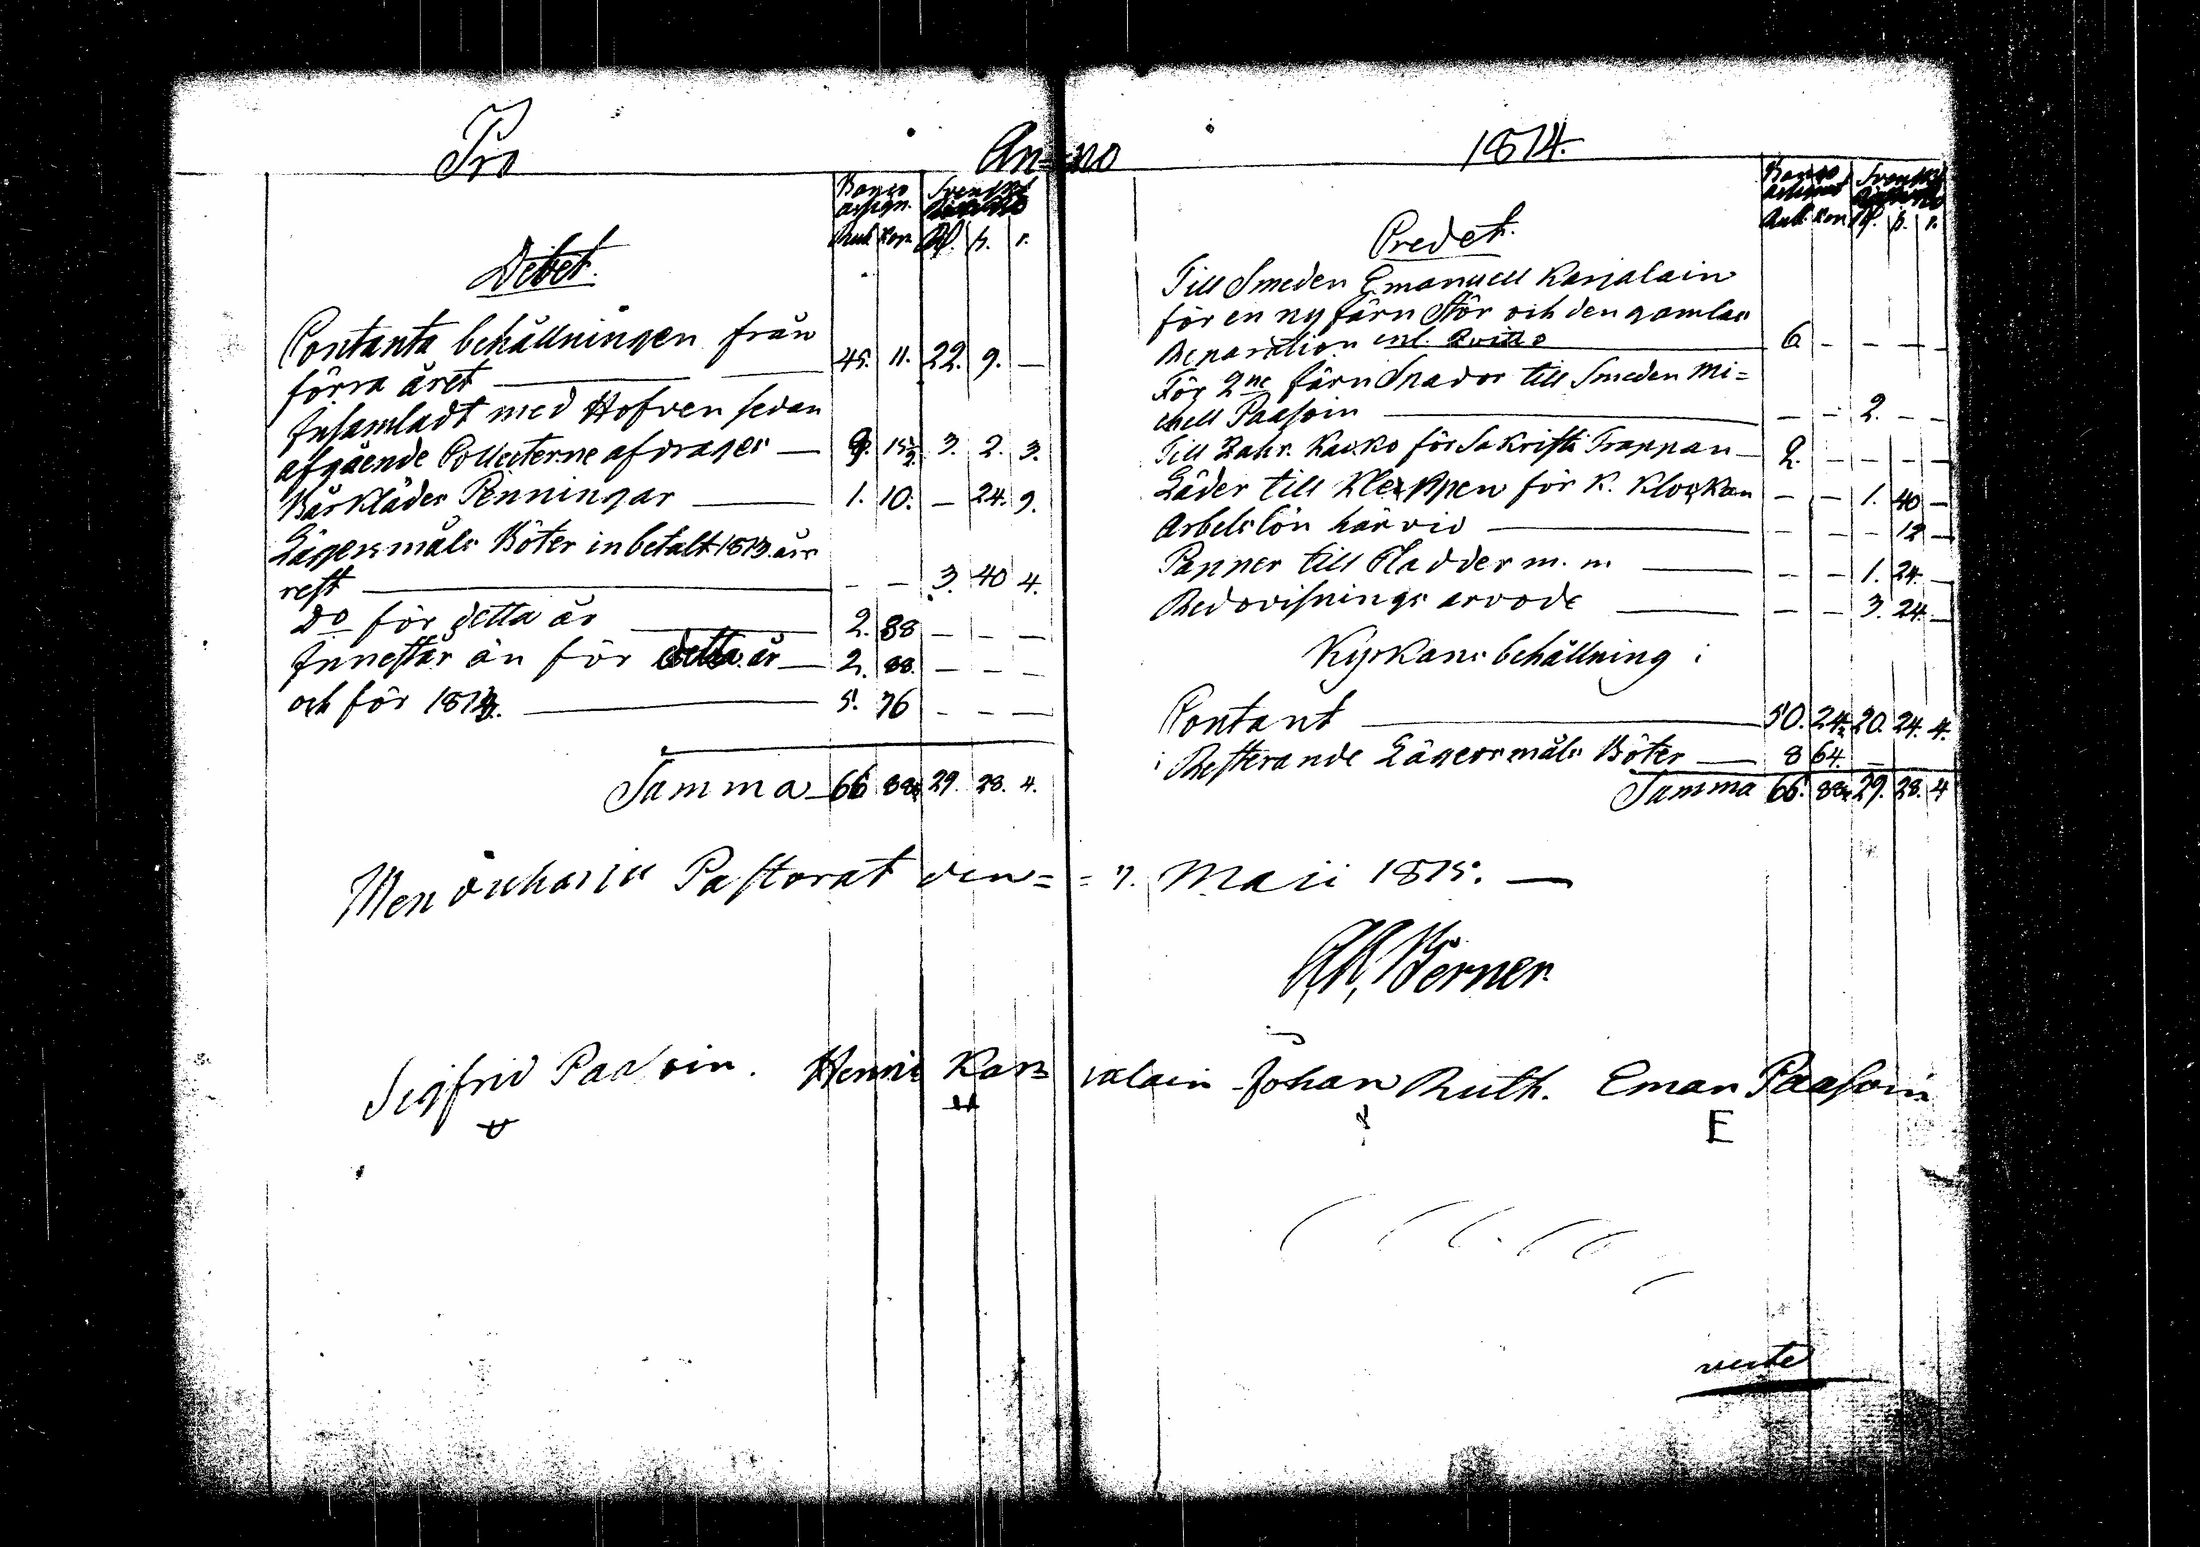 Pro An=
Banco Svenskt
assign.
Rub. Kop. Rd. s. r.
Debet.
Contanta behållningen från
förra året — 45. 11. 22. 9. —
Insamladt med Hofven sedan
afgående Collecterne afdrages — 9. 15½ 3. 2. 3.
Bårkläder Penningar — 1. 10. — 24. 9.
Lägersmåls Böter inbetalt 1813 års
rest — — — 3. 40 4.
Do för detta år — 2. 88 — — —
Innestår än för detta år — 2. 88. — — —
och för 1813. — 5. 76 — — —
Summa 66 88½ 29. 28. 4.
=no 1814.
Banco Svenskt
assignat
Rub. Kop. Rd. s. r.
Credet.
Till Smeden Emanuell Karjalain
för en ny Järn Stör och den gamlas
Reparation enl. Qvitto — 6 — — — —
För 2ne Järn Spador till Smeden Mi=
chell Paasoin — — — 2. — —
Till Zahr. Kacko för Sakristi Trappan — 2. — — — —
Läder till Kleppen för K. Klockan — — 1. 40 —
Arbetslön härvid — — — — 12 —
Papper till Kladder m. m. — — — 1. 24. —
Redovisnings arvode — — — 3. 24. —
Kyrkans behållning i
Contant — 50. 24½ 20. 24. 4.
i Resterande Lägersmåls Böter — 8 64. —
Summa 66. 88½ 29. 28. 4
Pastorat den = = 7. Maii 1815. —
Werner.
Sigfrid Paasoin. Henric Kar= jalain Johan Ruth. Eman Paasoin
E
verte